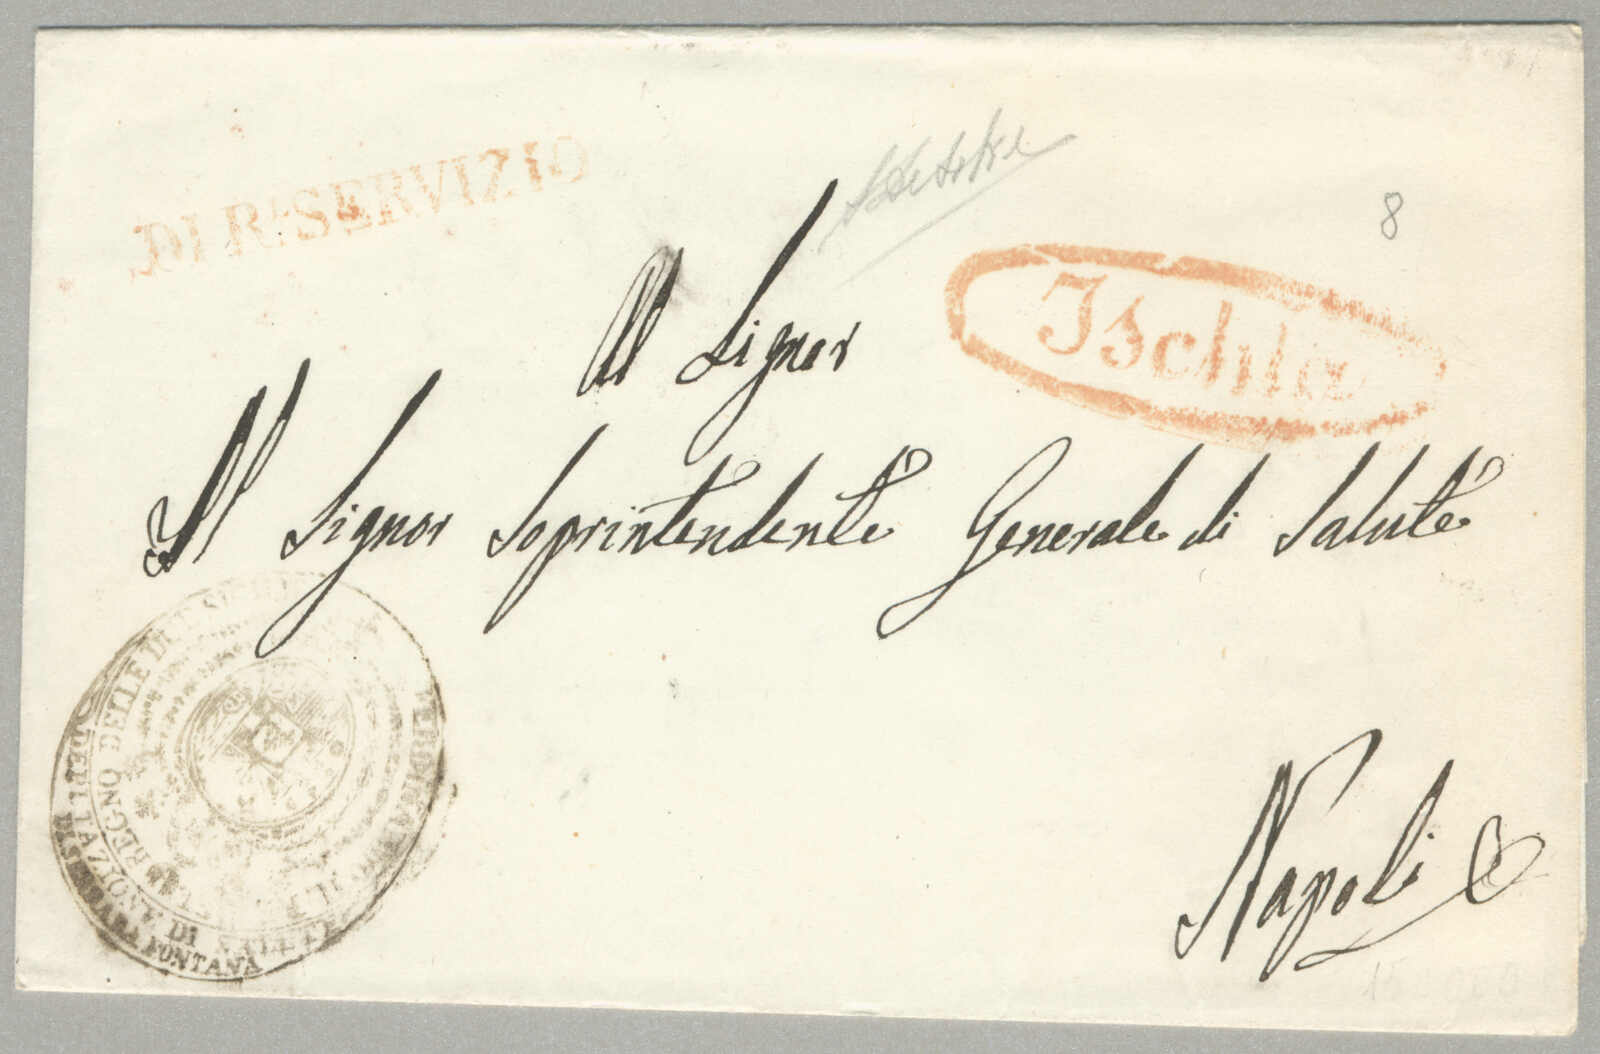 DI R.¹ SERVIZIO
8
Ischia
Al Signor
Il Signor Soprintendente Generale di Salute
Napoli
REGNO DELLE DUE SICILIE
FERDINANDO II
DI
FONTANA